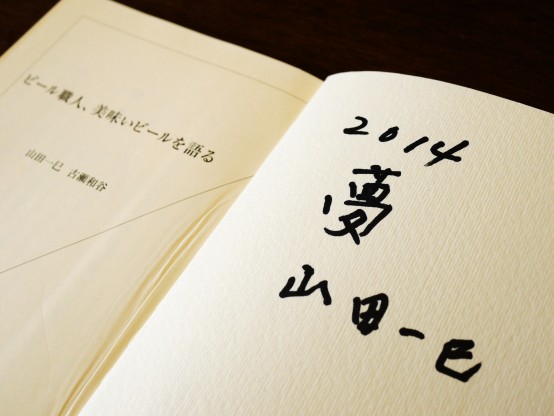 ビール職人、美味いビールを語る
山田一巳 古瀬和谷
2014
夢
山田一巳